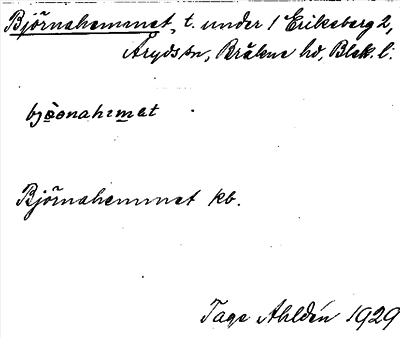 Björnahemmet, t. under 1 Eriksberg 2,
Åryds sn, Bräkne hd, Blek. l:
bjönahemet
Björnahemmet kb.
Tage Ahldén 1929